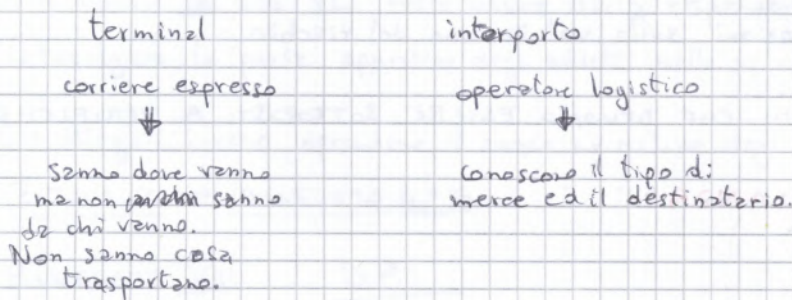 terminal
corriere espresso
sanno dove vanno
ma non sanno
da chi vanno.
Non sanno cosa
trasportano.
interporto
operatore logistico
conoscono il tipo di
merce ed il destinatario.